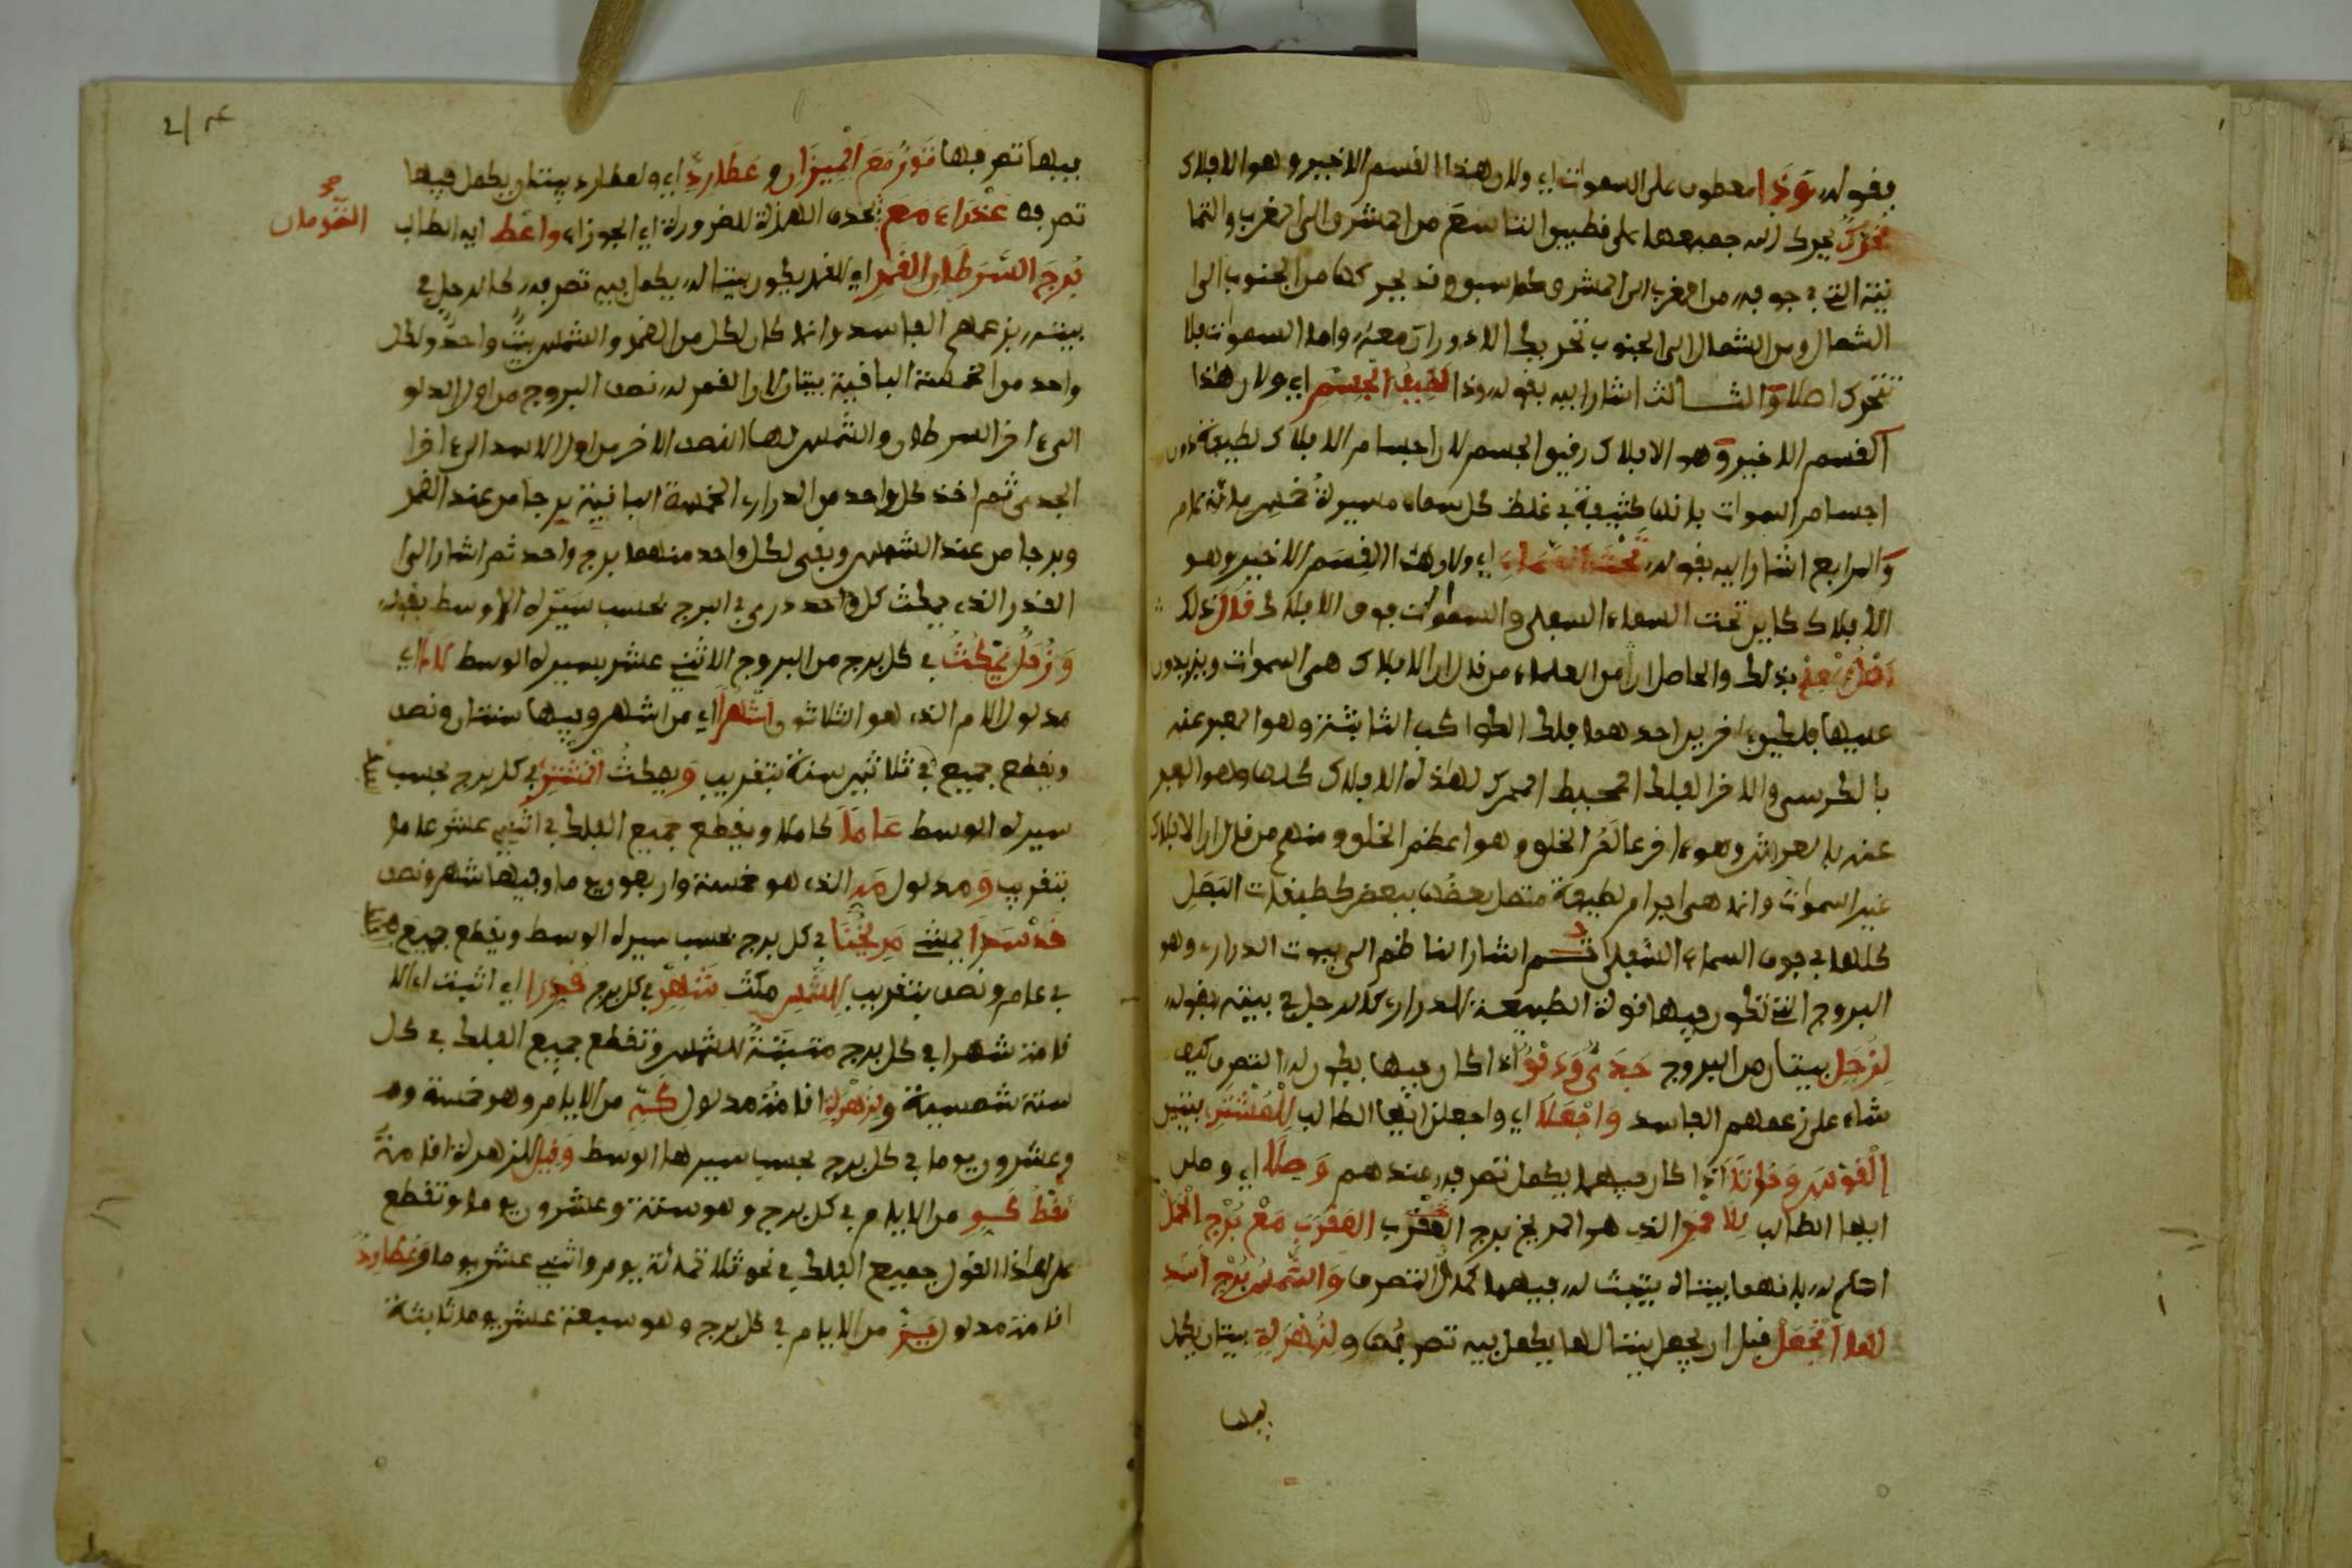 بقوله وَذَا معطوف على السموات اي ولان هذا القسم الاخير وهو الافلاك
تحرك يحرك الله جميعها على قطبي التاسع من المشرق الى المغرب والثما
نية التي في جوفه من المغرب الى المشرق كما سبق وقد يحركها من الجنوب الى
الشمال ومن الشمال الى الجنوب تحريك الله ورات معه واما السموات فلا
تتحرك اصلا والثالث اشار اليه بقوله وذا لطيف الجسم اي ولان هذا
القسم الاخير وهو الافلاك رقيق الجسم لان اجسام الافلاك لطيفة دون
اجسام السموات فانها كثيفة في غلظ كل سماء مسيرة خمس مائة عام
والرابع اشار اليه بقوله تحت السماء اي ولان هذا القسم الاخير وهو
الافلاك كاين تحت السماء السفلى والسموات فوق الافلاك قال ذلك
بذلك والحاصل ان من العلماء من قال ان الافلاك هي السموات ويزيدون
عليها فلكين اخرين احدهما فلك الكواكب الثابتة وهو المعبر عنه
بالكرسي والاخر الفلك المحيط المحرك لهذه الافلاك كلها وهو المعبر
عنه بالعرش وهو اخر عالم الخلق وهو اعظم الخلق ومنهم من قال ان الافلاك
غير السموات وانما هي اجرام لطيفة متصل بعضها ببعض كطبقات البصل
كلها في جوف السماء السفلى ثم اشار الناظم الى بيوت الدراري وهو
البروج التي تكون فيها قوة الطبيعة للدراري كالرجل في بيته بقوله
لزحل بيتان من البروج جدي ودلو اذا كان فيها يكون له التصرف كيف
شاء على زعمهم الفاسد واجعلا اي واجعلن ايها الطالب للمشتري بيتين
القوس وحوتا اذا كان فيهما يكمل تصرفه عندهم وصلا اي وصلن
ايها الطالب للاحمر الذي هو المريخ برج العقرب العقرب مع برج الحمل
احكم له بانهما بيتان يثبت له فيهما كمال التصرف والشمس برج اسد
لها اجعل قبل ان يجعل بيتا لها يكمل فيه تصرفها ولزهرة بيتان يكمل
فيها
فيها تصرفها ثور مع الميزان وعطارد اي ولعطارد بيتان يكمل فيهما
تصرفه عذراء مع بحذف الهمزة للضرورة اي الجوزاء واعط ايها الطالب
التومان
برج السرطان القمر اي للقمر يكون بيتا له يكمل فيه تصرفه كالرجل في
بيته بزعمهم الفاسد وانما كان لكل من القمر والشمس بيت واحد ولكل
واحد من الخمسة الباقية بيتان لان القمر له نصف البروج من اول الدلو
الى اخر السرطان والشمس لها النصف الاخر من اول الاسد الى اخر
الجدي ثم اخذ كل واحد من الدراري الخمسة الباقية برجا من عند القمر
وبرجا من عند الشمس وبقى لكل واحد منهما برج واحد ثم اشار الى
القدر الذي يمكث كل واحد دري في البرج بحسب سيره الاوسط بقوله
وزحل يمكث في كل برج من البروج الاثني عشر بسيره الوسط لاما اي
مدلول اللام الذي هو الثلاثون اشهرا اي من اشهر وفيها سنتان ونصف
ويقطع جميع في ثلاثين سنة بتقريب ويمكث المشتري في كل برج بحسب
سيره الوسط عاما كاملا ويقطع جميع الفلك في اثني عشر عاما
بتقريب ومدلول مه الذي هو خمسة واربعون يوما وفيها شهر ونصف
يمشي مريخنا في كل برج بحسب سيره الوسط ويقطع جميع
في عام ونصف بتقريب للشمس مكث شهر في كل برج قدرا اي اثبت
قامة شهرا في كل برج مثبتة للشمس وتقطع جميع الفلك في كل
سنة شمسية ولزهرة اقامة مدلول كه من الايام وهو خمسة
وعشرون يوما في كل برج بحسب سيرها الوسط وقيل للزهرة اقامة
نقط كو من الايام في كل برج وهو ستة وعشرون يوما وتقطع
على هذا القول جميع الفلك في نحو ثلاثمائة يوم واثني عشر يوما وعطارد
اقامة مدلول يز من الايام في كل برج وهو سبعة عشر يوما ثابتة